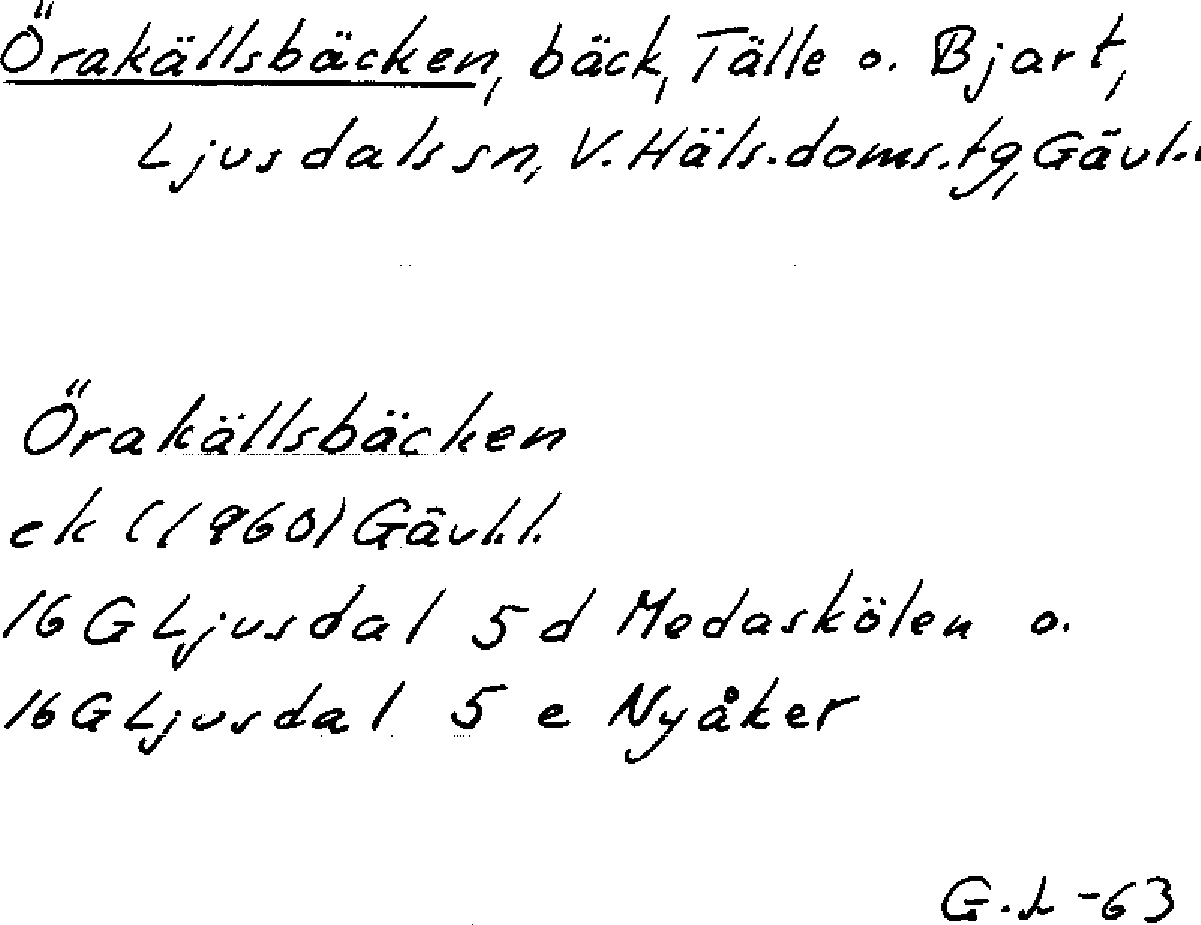 Örakällsbäcken, bäck, Tälle o. Bjart,
Ljusdals sn, V. Häls. doms. tg, Gävl. l
Örakällsbäcken
ek (1960) Gävl. l.
16 G Ljusdal 5 d Medaskölen o.
16 G Ljusdal 5 e Nyåker
G. L -63